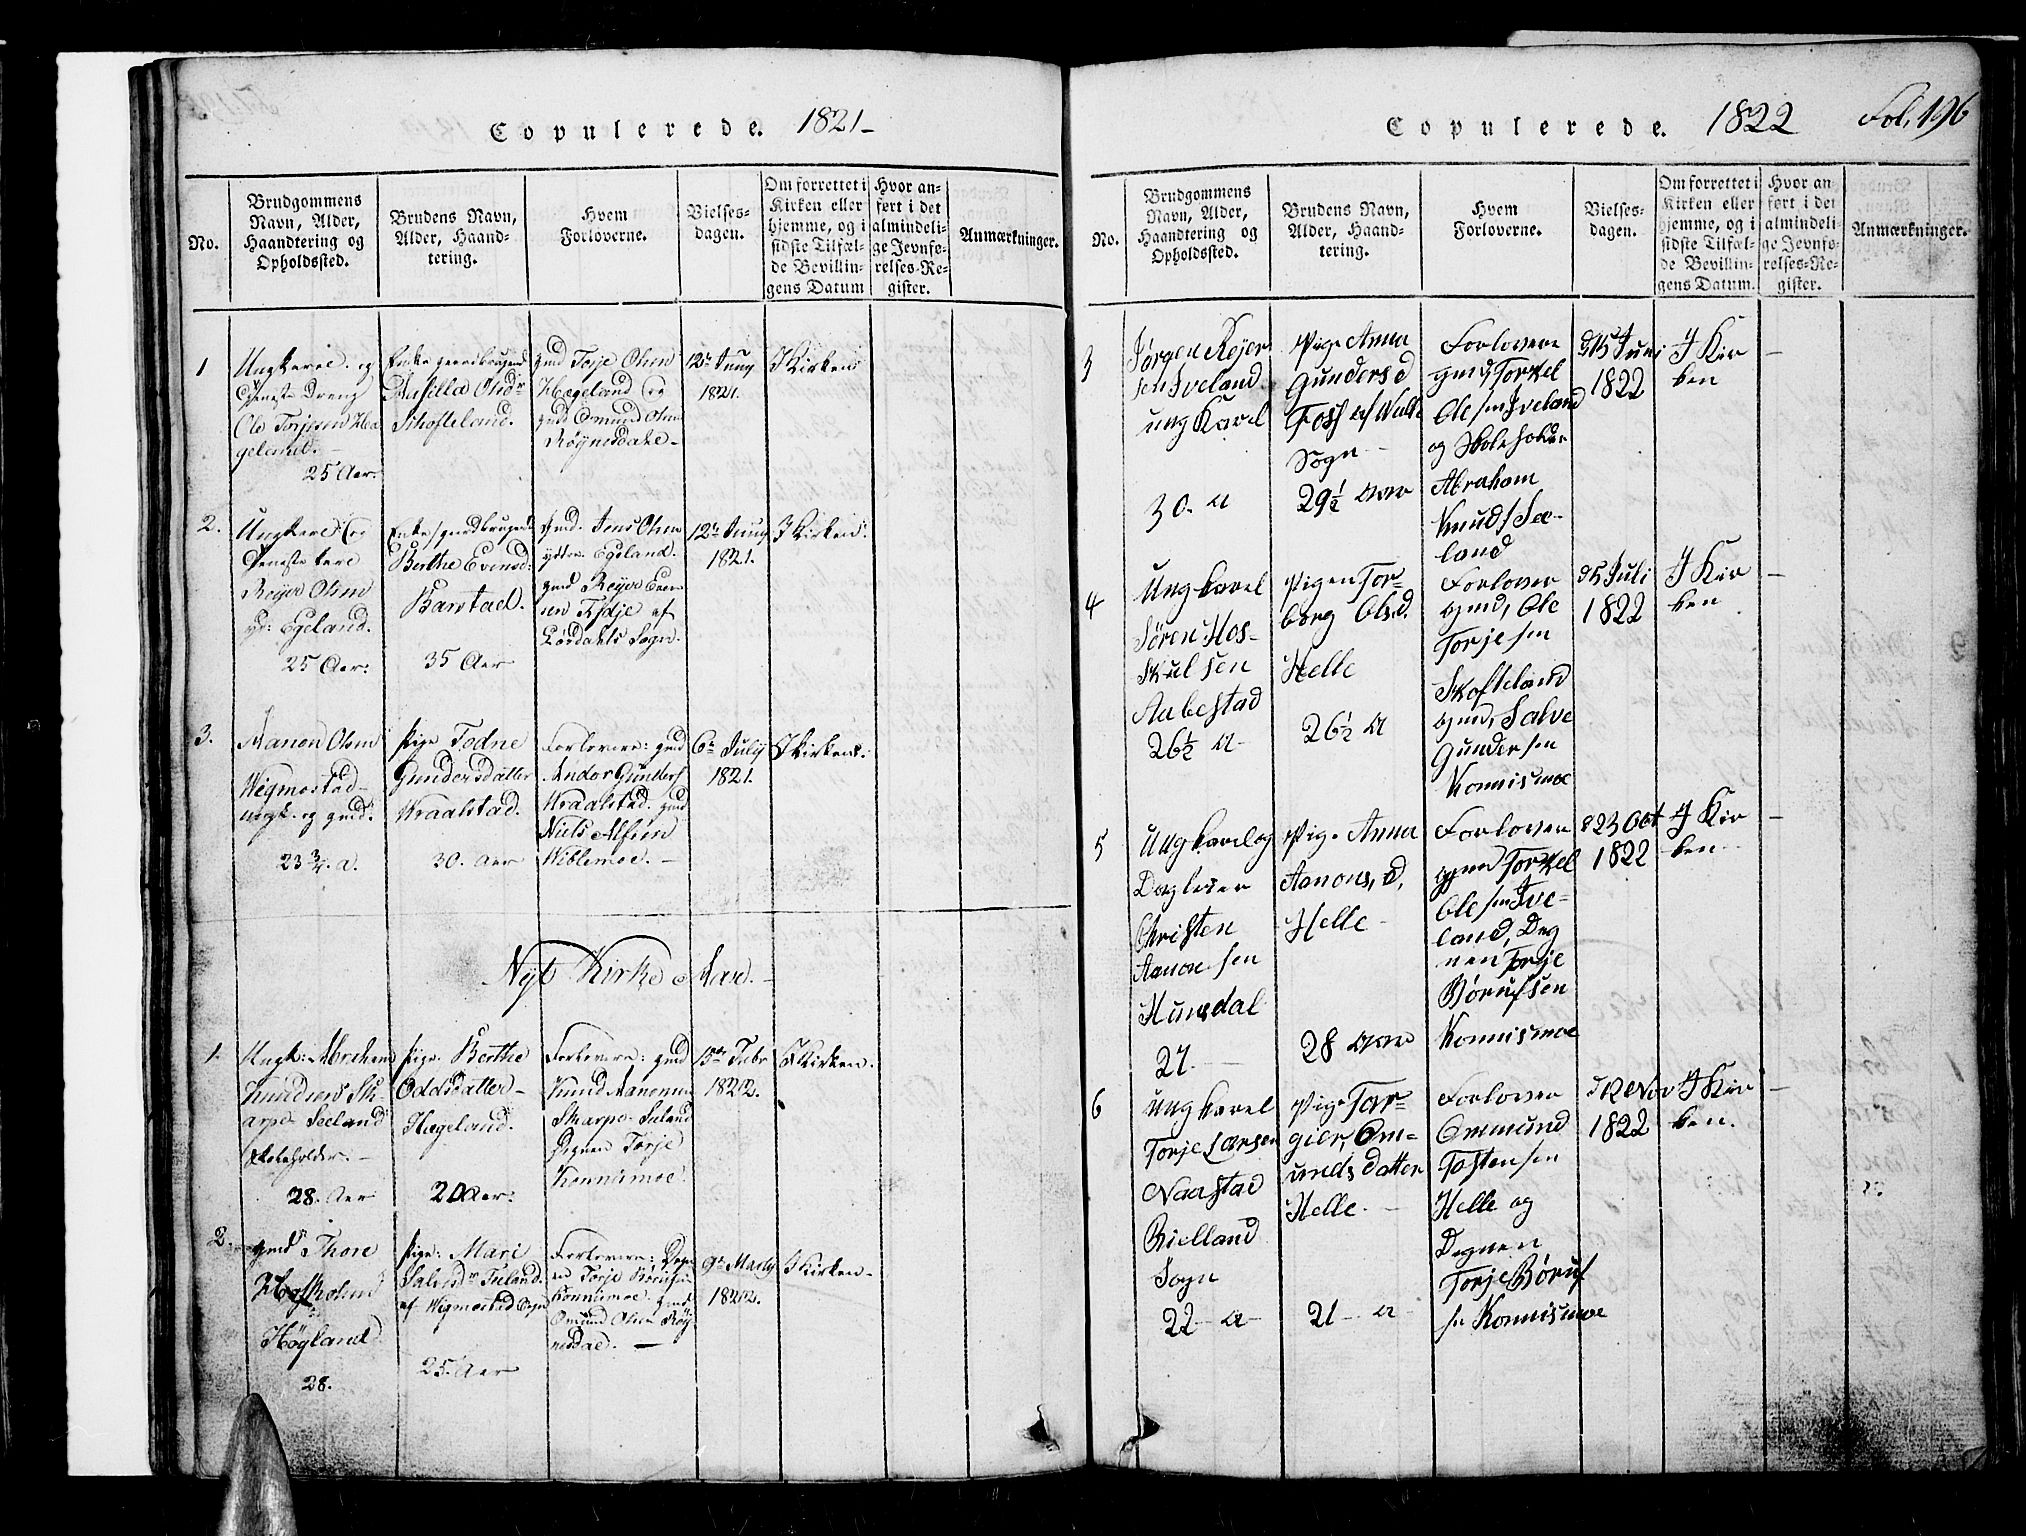 Copulerede. 1821-
No.
Brudgommens
Navn, Alder,
Haandtering og
Opholdssted.
Brudens Navn,
Alder, Haand-
tering.
Hvem
Forloverne.
Vielses-
dagen.
Om forrettet i
Kirken eller
hjemme, og i
sidste Tilfæl-
de Bevillin-
gens Datum
Hvor an-
ført i det
almindeli-
ge Jevnfø-
relses-Re-
gister.
Anmærkninger.
1
Ungkarl og
Tjeneste Dreng
Ole Torjesen Hæ
geland. -
25 Aar.
Enke
Olsd.
Skofteland.
gmd Torje Olsen
Hægeland og
gmd Omund Olsen
Røynesdahl -
12te Juny
1821.
I Kirken
2.
Ungkarl og
Reyer Olsen
yt: Egeland.
25 Aar:
Enke
Berthe Evensd:
Barstad.
35 Aar
gmd. Jens Olsen
yttre Egeland.
gmd Reyer Even
sen af
Sogn.
12te Juny
1821.
I Kirken.
3.
Aanon Olsen
Wigmostad -
ungk. og gmd.
23 3/4. a.
pige Todne
Gundersdatter
Kraalstad.
30. Aar
Forlovere: gmd
Andor Gunders
Kraalstad. gmd
Niels Alfsen
Wiblemoe. -
6te July
1821.
I Kirken.
Nyt Kirke Aar. -
1.
Ungk: Abraham
Knudsen Sk-
arpe Seeland
Skoleholder. -
28. Aar
pige. Berthe
Oddsdatter -
Hægeland.
20 Aar.
Forlovere: gmd
Knud Aanonsen
Skarpe-Seeland
Degnen Torje
Konnismoe.
15de Febr
1822.
I Kirken.
2.
gmd Thore
Høgland
28.
pige: Mari
af Wigmostad Sogn
25. Aar
Forlovere: Deg
nen Torje Børufsen
Konnismoe. gmd
Omund Olsen Røy
nesdal. -
9de Marty
1822.
I Kirken -
Copulerede. 1822 Fol. 196
No.
Brudgommens
Navn, Alder,
Haandtering og
Opholdssted.
Brudens Navn,
Alder, Haand-
tering.
Hvem
Forloverne.
Vielses-
dagen.
Om forrettet i
Kirken eller
hjemme, og i
sidste Tilfæl-
de Bevillin-
gens Datum.
Hvor an
ført i det
almindeli-
ge Jevnfø-
relses-Re-
gister.
Anmærkninger.
3
Jørgen Rejer
sen Iveland
ung Karel
30. a
Pige Anna
Gundersd
Foss af Valle
Sogn -
29 1/2 aar
Forlovere
gmd, Torkel
Olesen Iveland
og Skoleholder
Abraham
Knuds See-
land
d 15 Juni
1822
I Kir
ken
-
4
Ung karel
Søren Hos-
Skuldsen
Aabestad
26 1/2 a -
Pigen Tor-
borg Ols.d.
Helle
26 1/2 a
Forlover
gmd, Ole
Torjesen
Skofteland
gmd, Salve
Gundersen
Konnismoe
d 5 Juli
1822
I Kir
ken
-
5
Ung karel og
Christen
Aanonsen
Hunsdal
27. -
Pige Anna
Aanons, d,
Helle -
28 aar
Forlover
gmd Torkel
Olesen Ive-
land, Deg
nen Torje
Børufsen
Konnismoe
d 23 Oct
1822
I Kir
ken -
-
6
ung karel
Torje Larsen
Naastad
Bielland
Sogn
22 - a -
Pige Tar-
gier, Om-
unds datter
Helle. -
21 - a
Forlover
Ommund
Tostensen
Helle og
Degnen
Torje Børuf
sn Konnismoe
d 12 Nov
1822
I Kir
ken.
-